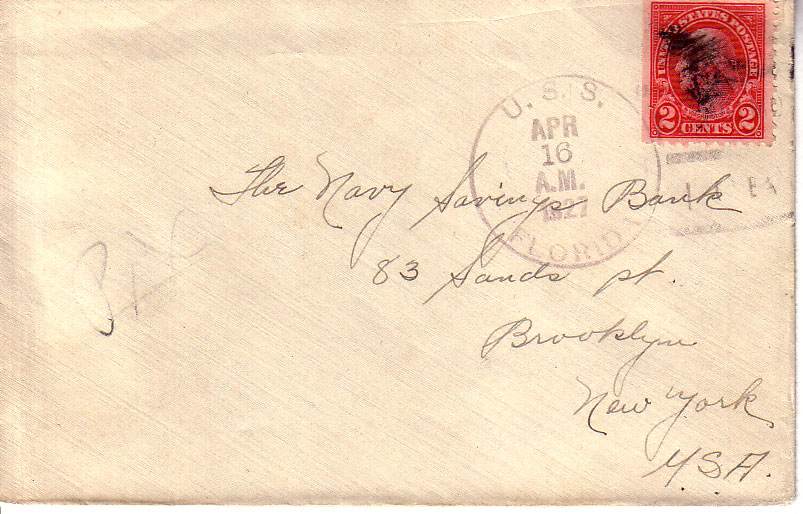 UNITED STATES POSTAGE
2 CENTS 2
U.S.S.
APR
16
A.M.
1927
FLORIDA
The Navy Savings Bank
83 Sands St.
Brooklyn
New York
USA.